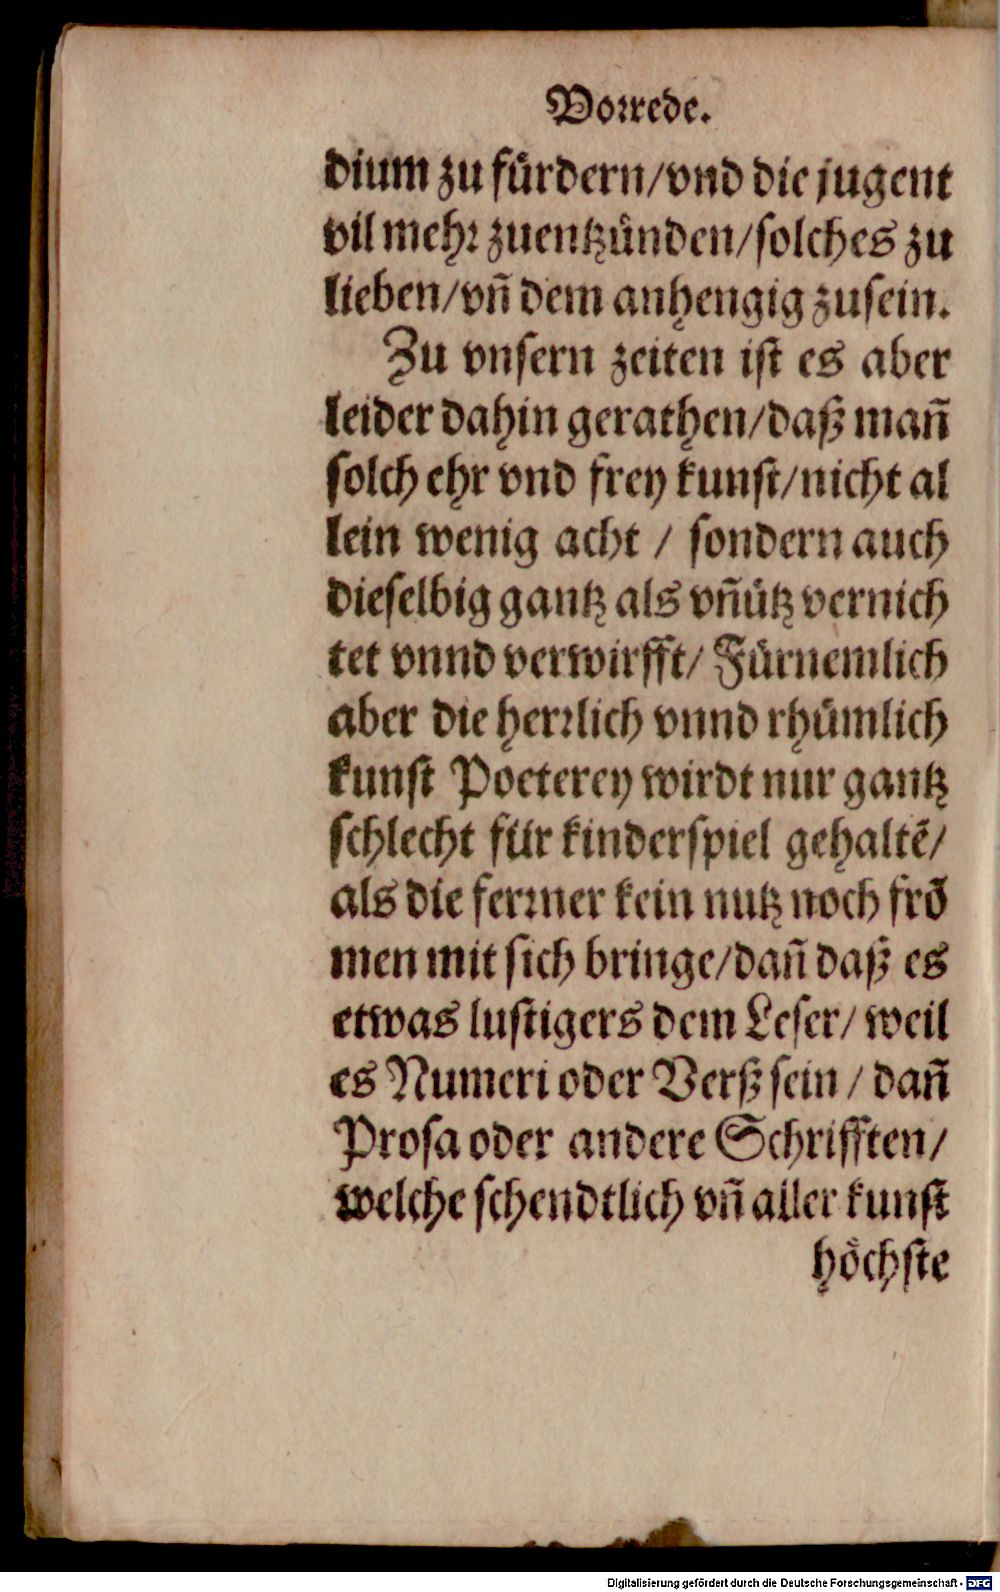 Vorrede.
dium zu fürdern/vnd die jugent
vil mehr zuentzünden/solches zu
lieben/vñ dem anhengig zusein.
Zu vnsern zeiten ist es aber
leider dahin gerathen/daß mañ
solch ehr vnd frey kunst/nicht al
lein wenig acht / sondern auch
dieselbig gantz als vñütz vernich
tet vnnd verwirfft/ Fürnemlich
aber die herrlich vnnd rhümlich
kunst Poeterey wirdt nur gantz
schlecht für kinderspiel gehaltē/
als die ferrner kein nutz noch frō
men mit sich bringe/dañ daß es
etwas lustigers dem Leser/ weil
es Numeri oder Verß sein / dañ
Prosa oder andere Schrifften/
welche schendtlich vñ aller kunst
höchste
Digitalisierung gefördert durch die Deutsche Forschungsgemeinschaft - DFG